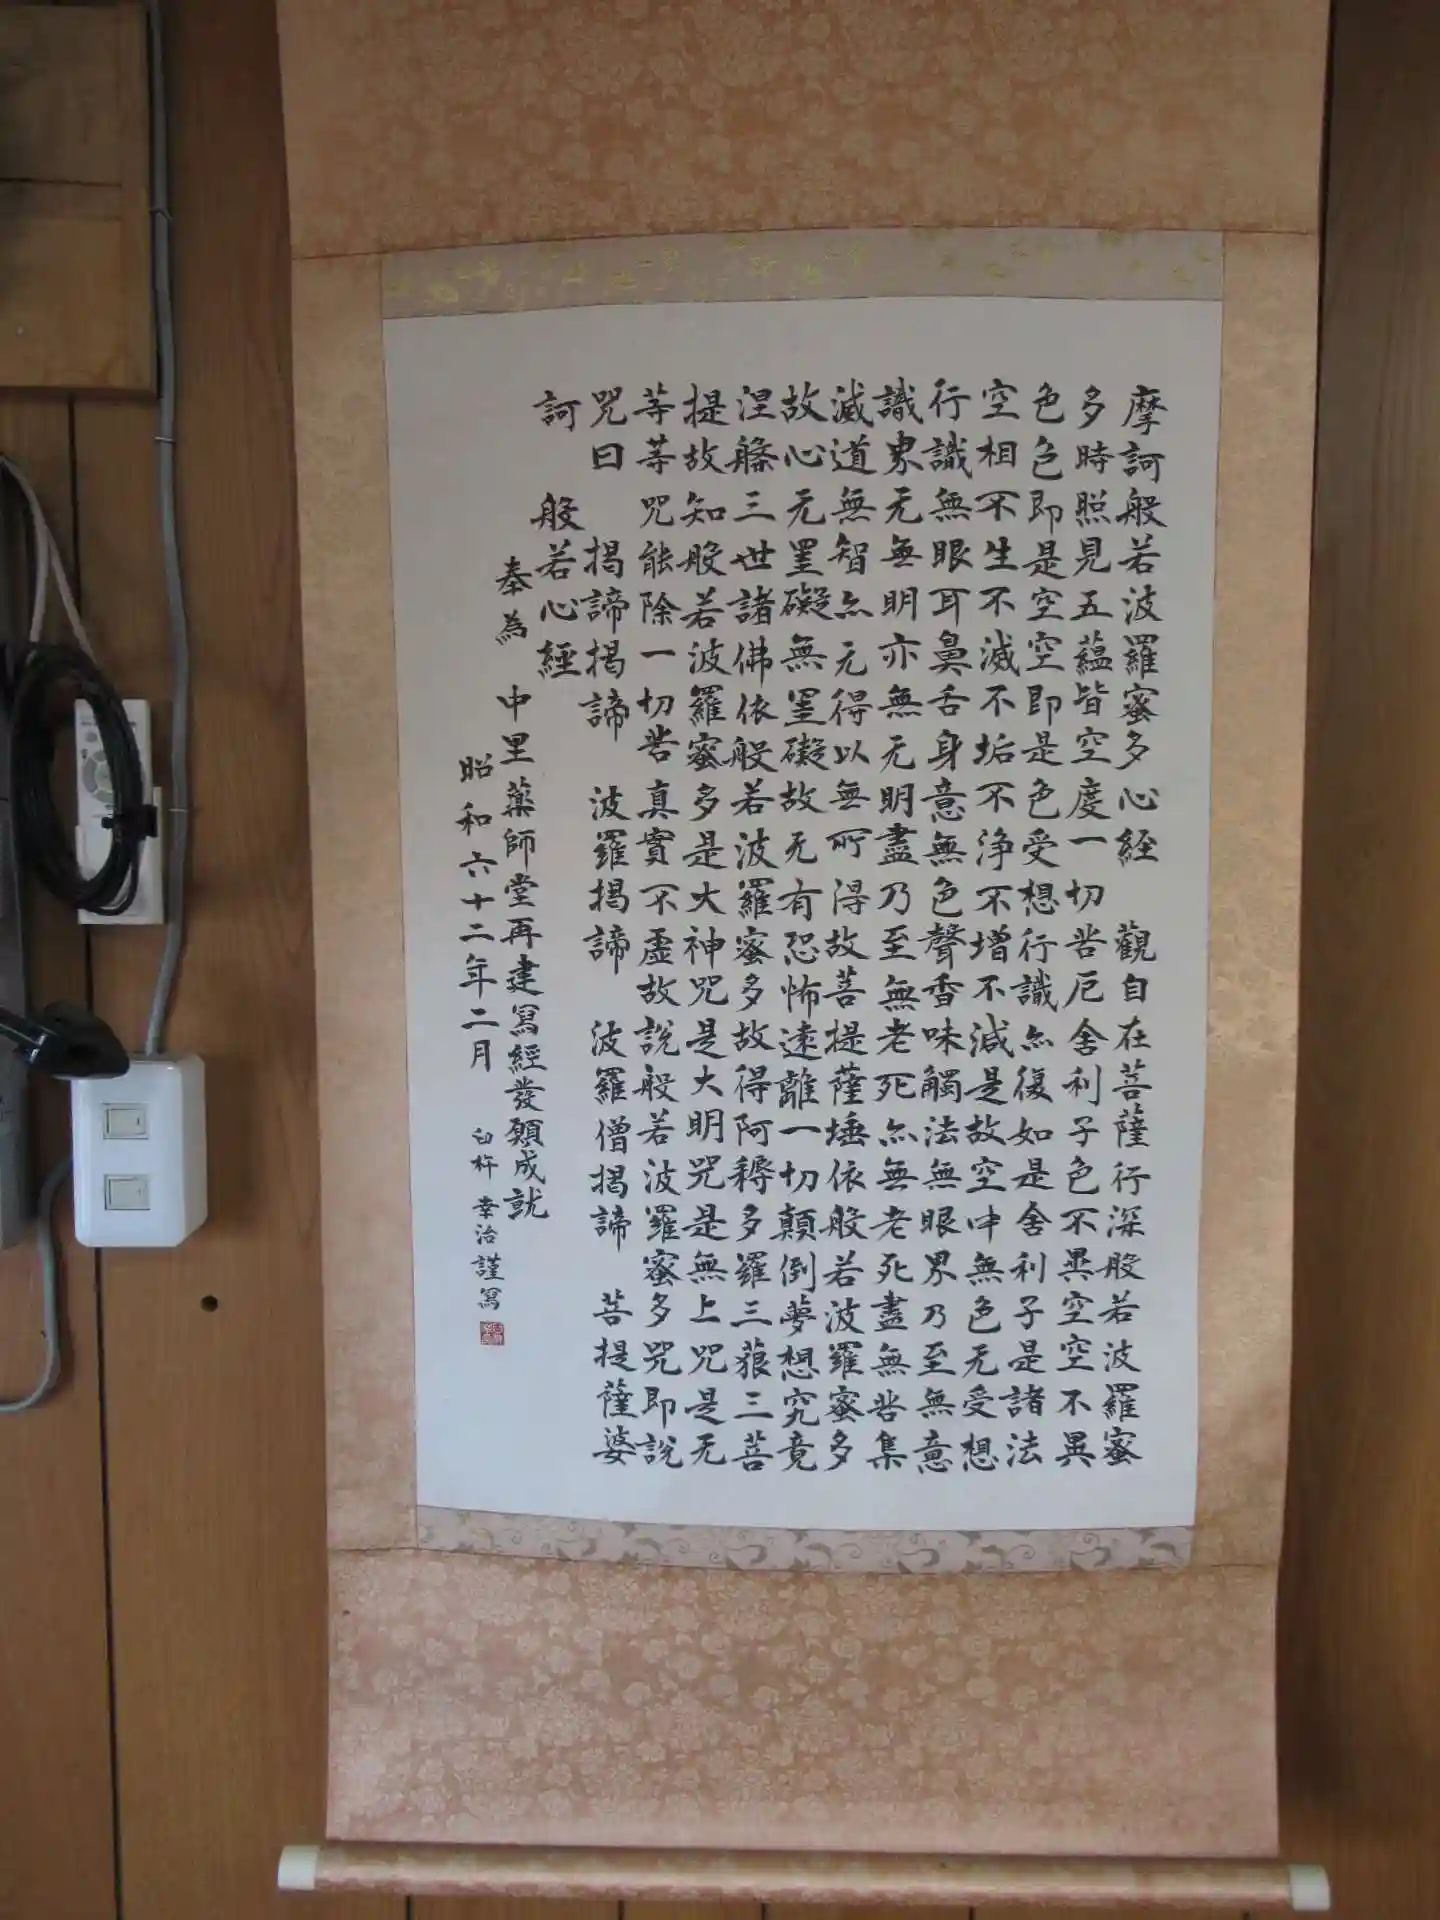 摩訶般若波羅蜜多心経 觀自在菩薩行深般若波羅蜜
多時照見五蘊皆空度一切苦厄舎利子色不異空空不異
色色即是空空即是色受想行識亦復如是舎利子是諸法
空相不生不滅不垢不浄不増不減是故空中無色无受想
行識無眼耳鼻舌身意無色聲香味觸法無眼界乃至無意
識界无無明亦無无明盡乃至無老死亦無老死盡無苦集
滅道無智亦无得以無所得故菩提薩埵依般若波羅蜜多
故心无罣礙無罣礙故无有恐怖遠離一切顛倒夢想究竟
涅槃三世諸佛依般若波羅蜜多故得阿耨多羅三藐三菩
提故知般若波羅蜜多是大神咒是大明咒是無上咒是无
等等咒能除一切苦真實不虚故説般若波羅蜜多咒即説
咒曰 揭諦揭諦 波羅揭諦 波羅僧揭諦 菩提薩婆
訶 般若心經
奉為 中里薬師堂再建寫經發願成就
昭和六十二年二月 臼杵 幸治謹寫